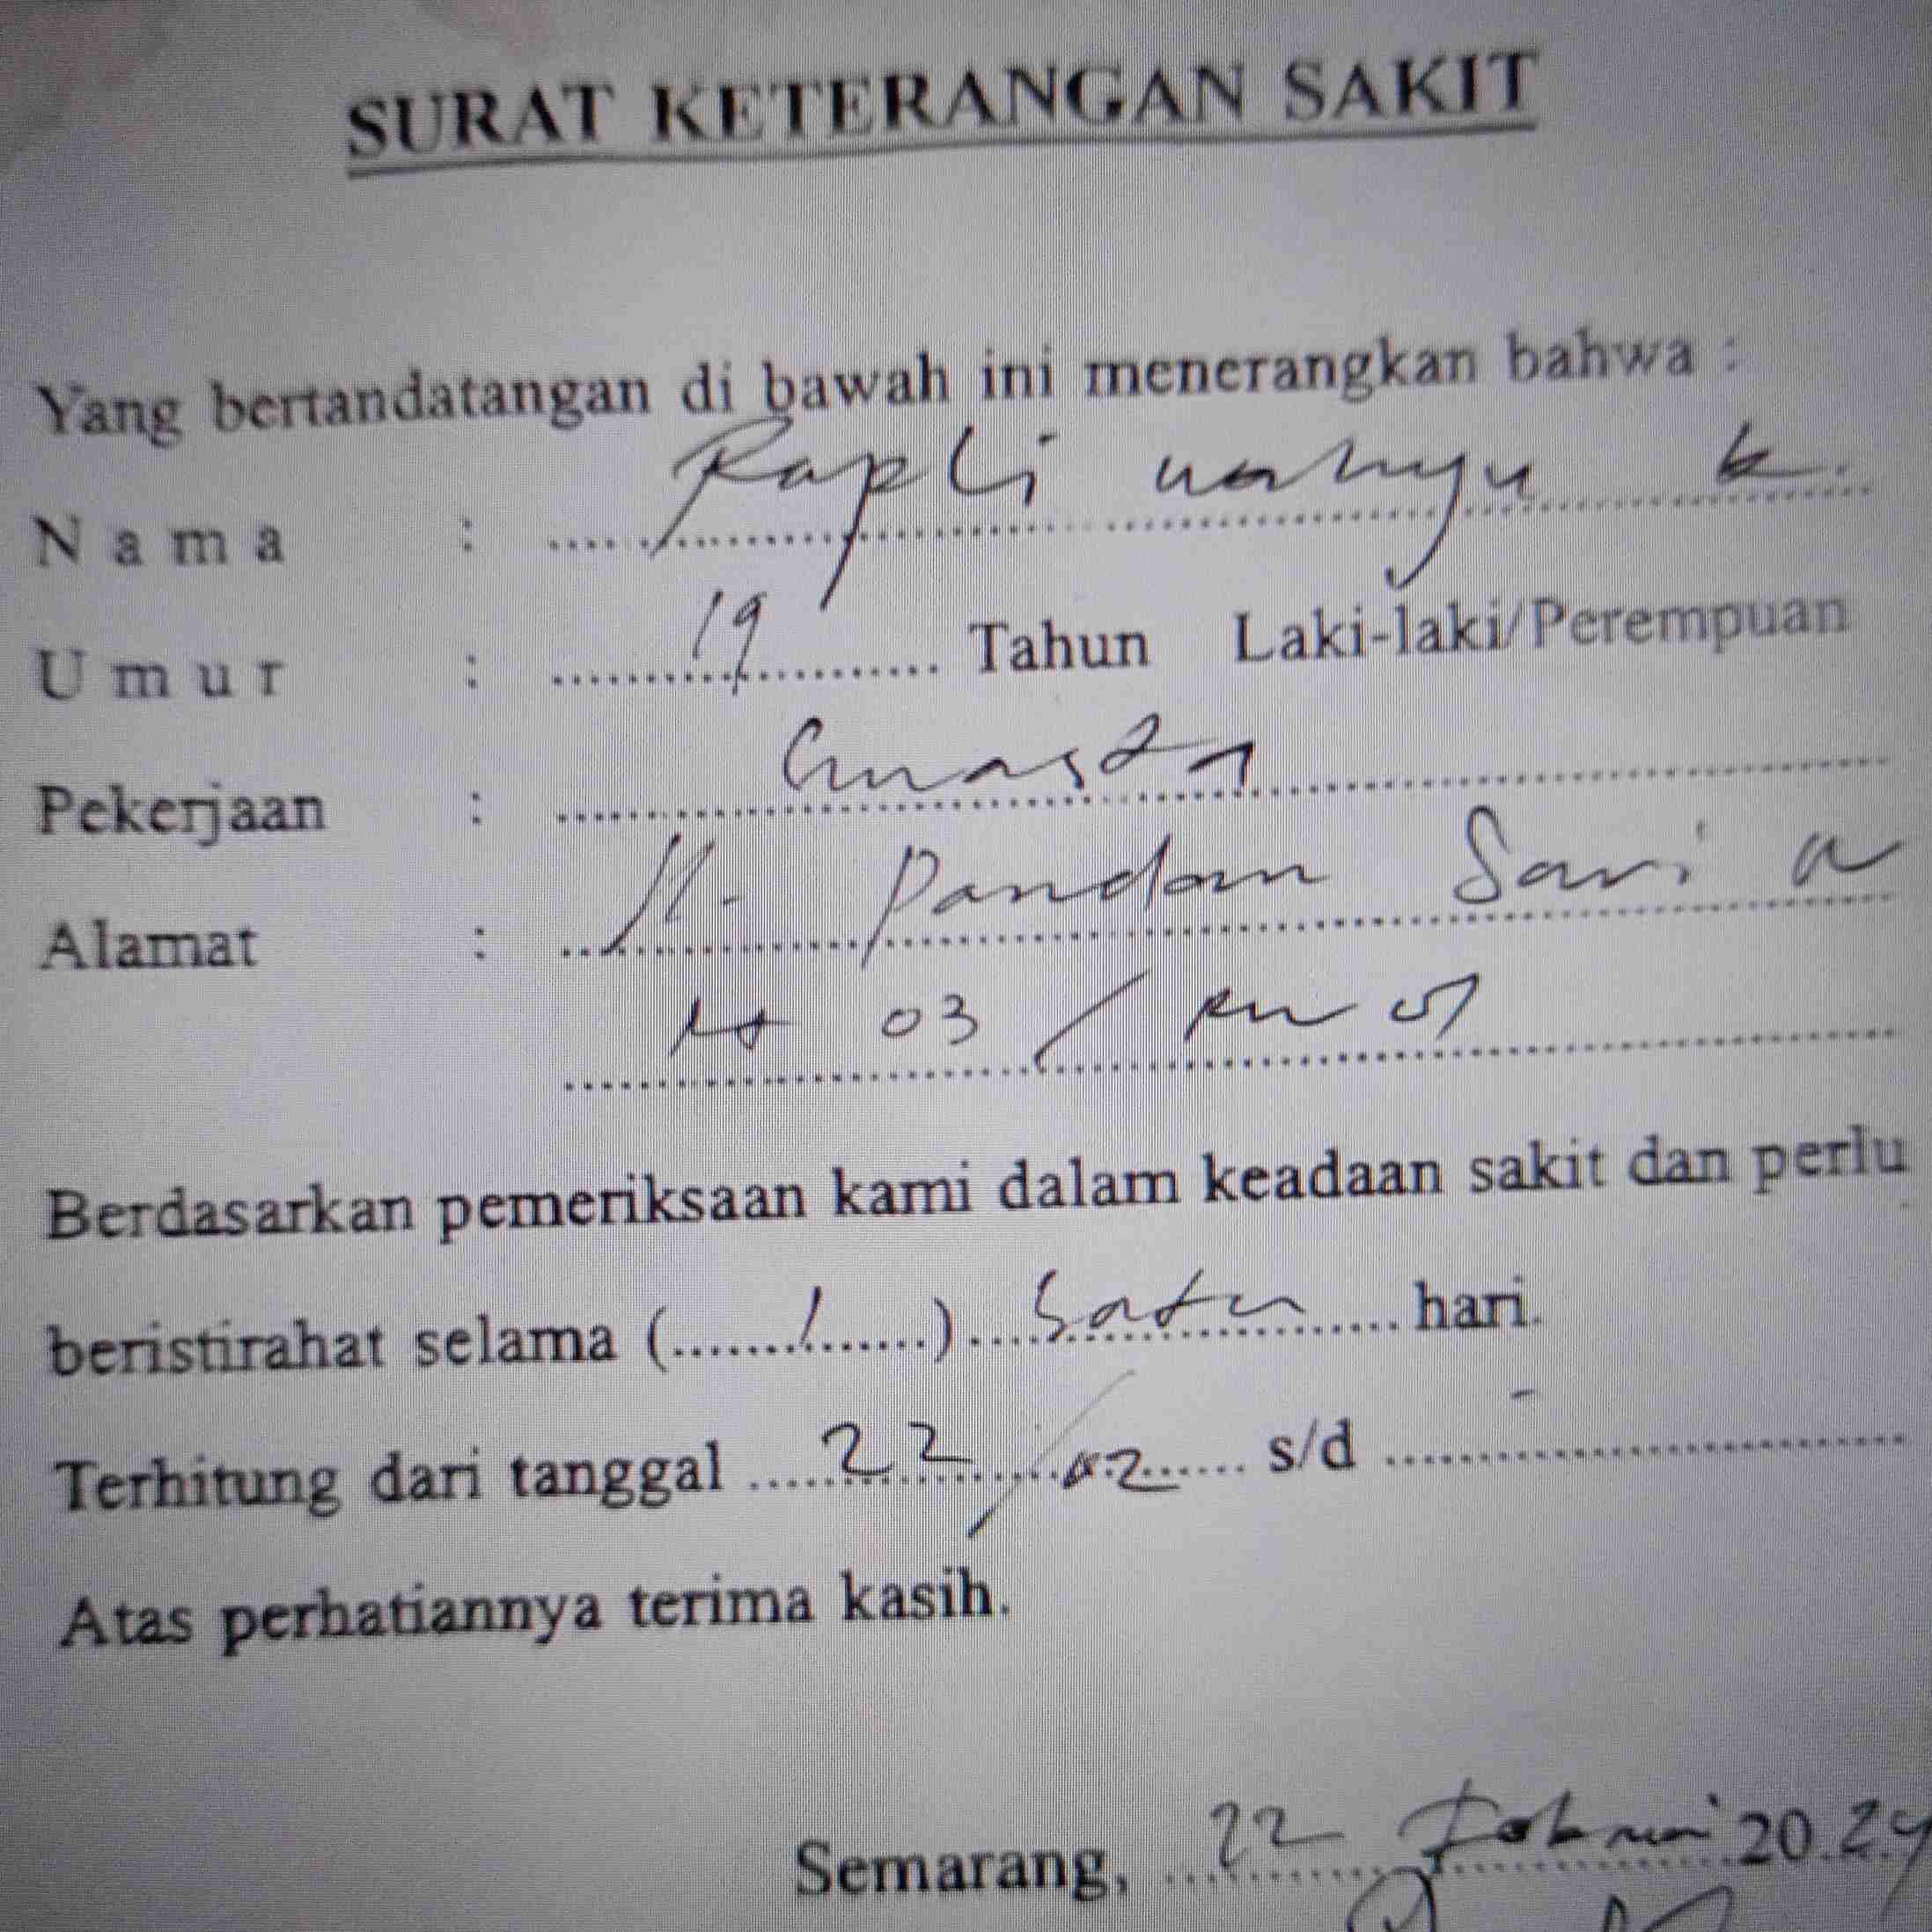 SURAT KETERANGAN SAKIT
Yang bertandatangan di bawah ini menerangkan bahwa :
Nama : Rapli wahyu k.
Umur : 19 Tahun Laki-laki/Perempuan
Pekerjaan :
Alamat : Jl. Pandan Sari
Rt 03 / RW
Berdasarkan pemeriksaan kami dalam keadaan sakit dan perlu
beristirahat selama (....1....) Satu hari.
Terhitung dari tanggal 22/02 s/d -
Atas perhatiannya terima kasih.
Semarang, 22 Februari 20.24